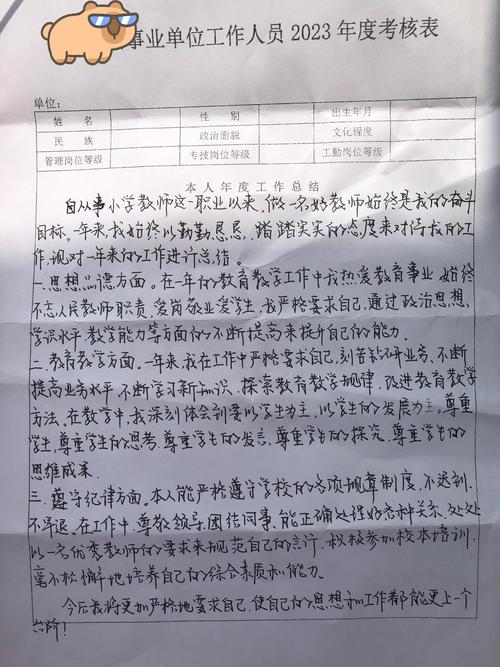 事业单位工作人员 2023 年度考核表
单位：
姓 名 性 别 出生年月
民 族 政治面貌 文化程度
管理岗位等级 专技岗位等级 工勤岗位等级
本人年度工作总结
自从事小学教师这一职业以来，做一名好教师始终是我的奋斗
目标。一年来，我始终以勤勤恳恳、踏踏实实的态度来对待我的工
作，现对一年来的工作进行总结。
一.思想品德方面。在一年的教育教学工作中我热爱教育事业，始终
不忘人民教师职责，爱岗敬业爱学生。我严格要求自己，通过政治思想、
学识水平、教学能力等方面的不断提高来提升自己的能力.
二.教育教学方面。一年来，我在工作中严格要求自己，刻苦钻研业务，不断
提高业务水平，不断学习新知识，探索教育教学规律，改进教育教学
方法。在教学中，我深刻体会到要以学生为主，以学生的发展为主。尊重
学生，尊重学生的思考，尊重学生的发言，尊重学生的探究，尊重学生的
思维成果.
三.遵守纪律方面。本人能严格遵守学校的各项规章制度，不迟到、
不早退。在工作中，尊敬领导、团结同事，能正确处理好各种关系，处处处
以一名优秀教师的要求来规范自己的言行。积极参加校本培训，
毫不松懈地培养自己的综合素质和能力。
今后我将更加严格地要求自己，使自己的思想和工作都能更上一个
台阶！